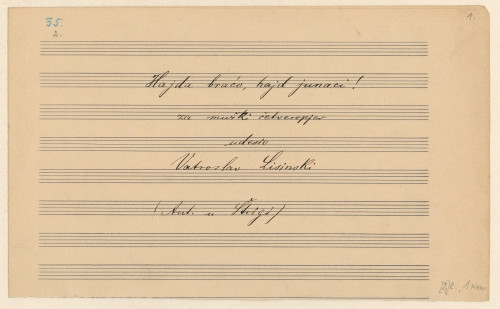 35.
2.
1.
Hajda braćo, hajd junaci!
za muški četveropjev
udesio
Vatroslav Lisinski
(Ant. u